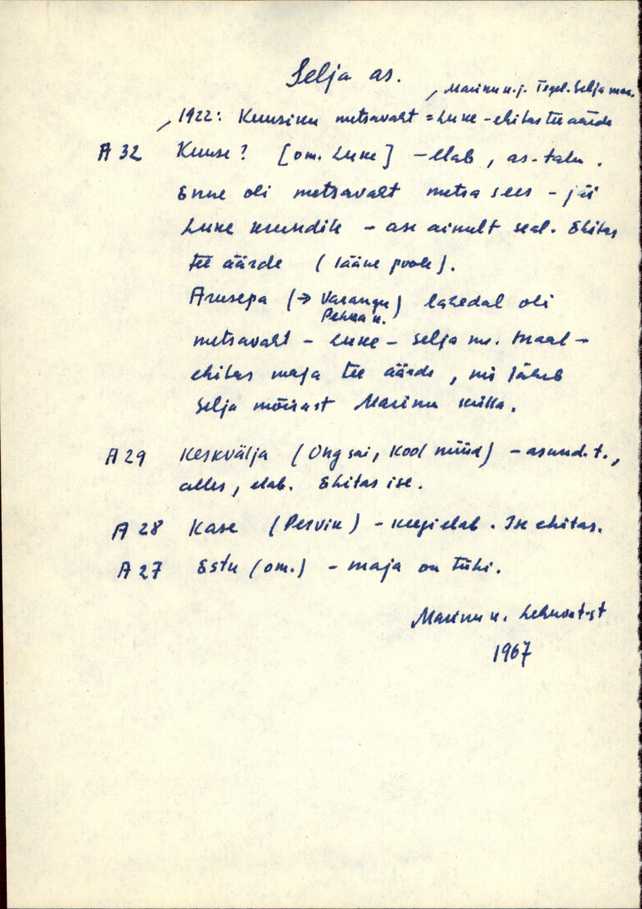 Selja as.
Marinu u.j. Tegel. Selja maa
1922: Kuusiku metsavaht = Luke - ehitas tee äärde
A 32 Kuuse? [om. Luke] - elab, as-talu.
Enne oli metsavaht metsa sees - jäi
Luke krundile - ase ainult seal. Ehitas
tee äärde (lääne poole).
Arusepa (→ Varangu) lähedal oli
metsavaht - Luke - Selja m. maal -
ehitas maja tee äärde, mis läheb
Selja mõisast Marinu külla.
A 29 Keskvälja (Ong sai, Kool nüüd) - asund.t.,
alles, elab. Ehitas ise.
A 28 Kase (Pervik) - keegi elab. Ise ehitas.
A 27 Estu (om.) - maja on tühi.
Marinu k.
1967